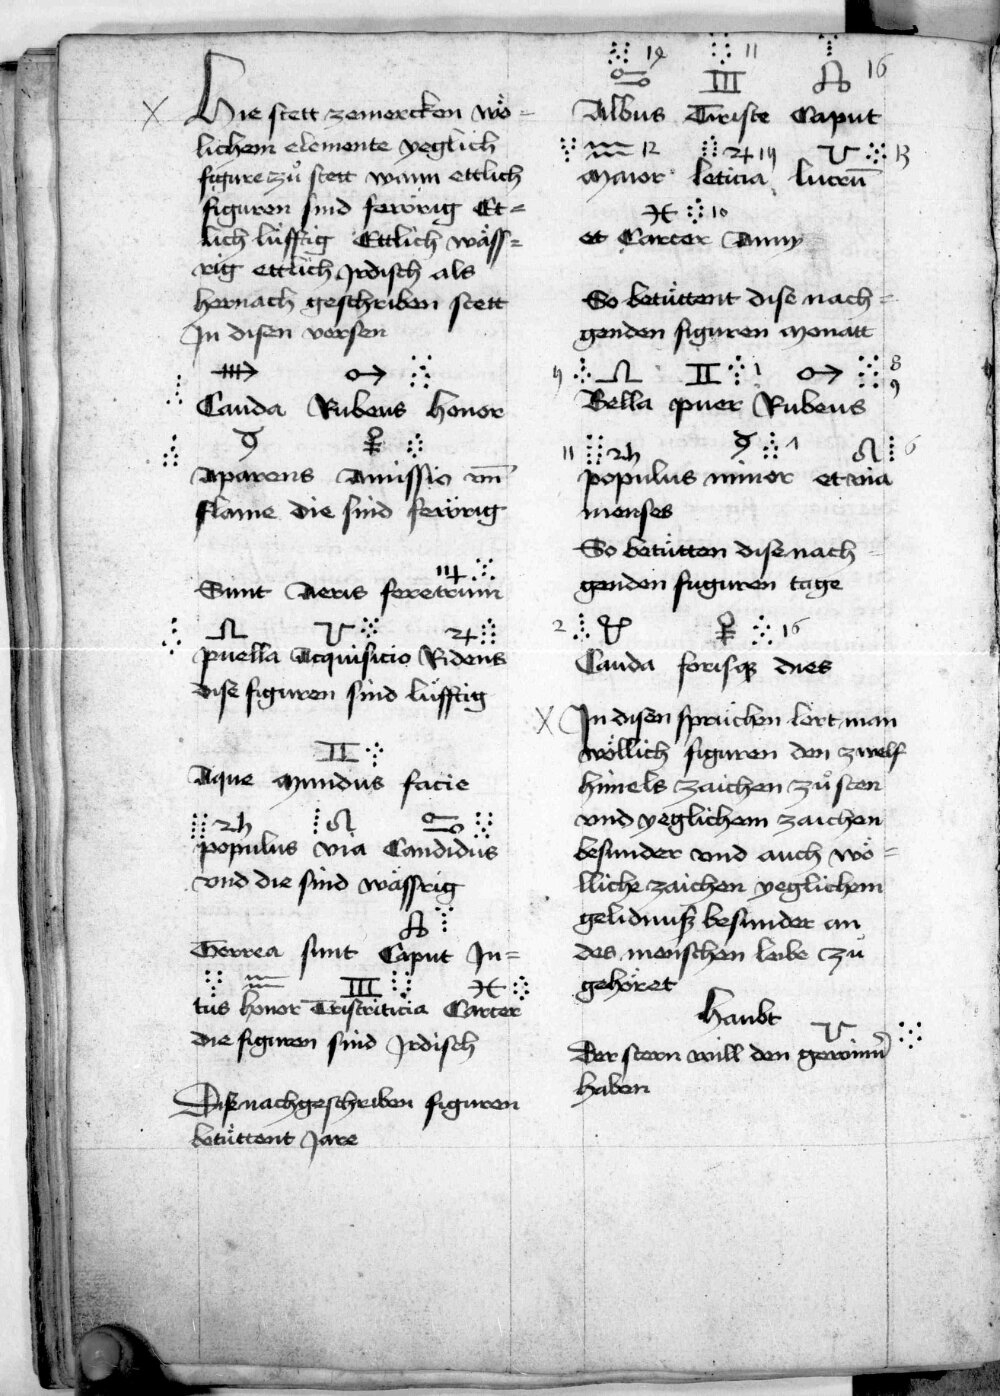 Hie stett zemercken wö=
lichem elemente yeglich
figure zů stett wann ettlich
figuren sind fewrig Et=
lich lüfftig Ettlich wäss=
rig ettlich Jrdisch als
hernach geschriben stett
Jn disen versen
Cauda Rubeus honor
Aparens Amissio vn̄
flame die sind fewrig
Sunt Aeris feretrum
puella Acquisicio Ridens
dise figuren sind lüfftig
Aque mundus facie
populus via Candidus
vnd die sind wässrig
Terrea sunt Caput Jn=
tus honor Tristiticia Carcer
die figuren sind Jrdisch
Dise nachgeschriben figuren
betüttent Jare
19 11 16
Albus Triste Caput
12 14 13
maior leticia lucrū
10
et Carcer Anny
So betüttent dise nach=
genden figuren monatt
8
9
Bella puer Rubeus
11 6
populus minor et via
menses
So betütten dise nach=
genden fuguren tage
2 16
Cauda forisq dies
Jn disen sprüchen lert man
wöllich figuren den zwelf
himels zaichen zů sten
vnd yeglichem zaichen
besunder vnd auch wö=
lliche zaichen yeglichem
gelidmuß besunder an
des menschen leibe zů
gehöret
Haubt
Der stern will den gewinn
haben